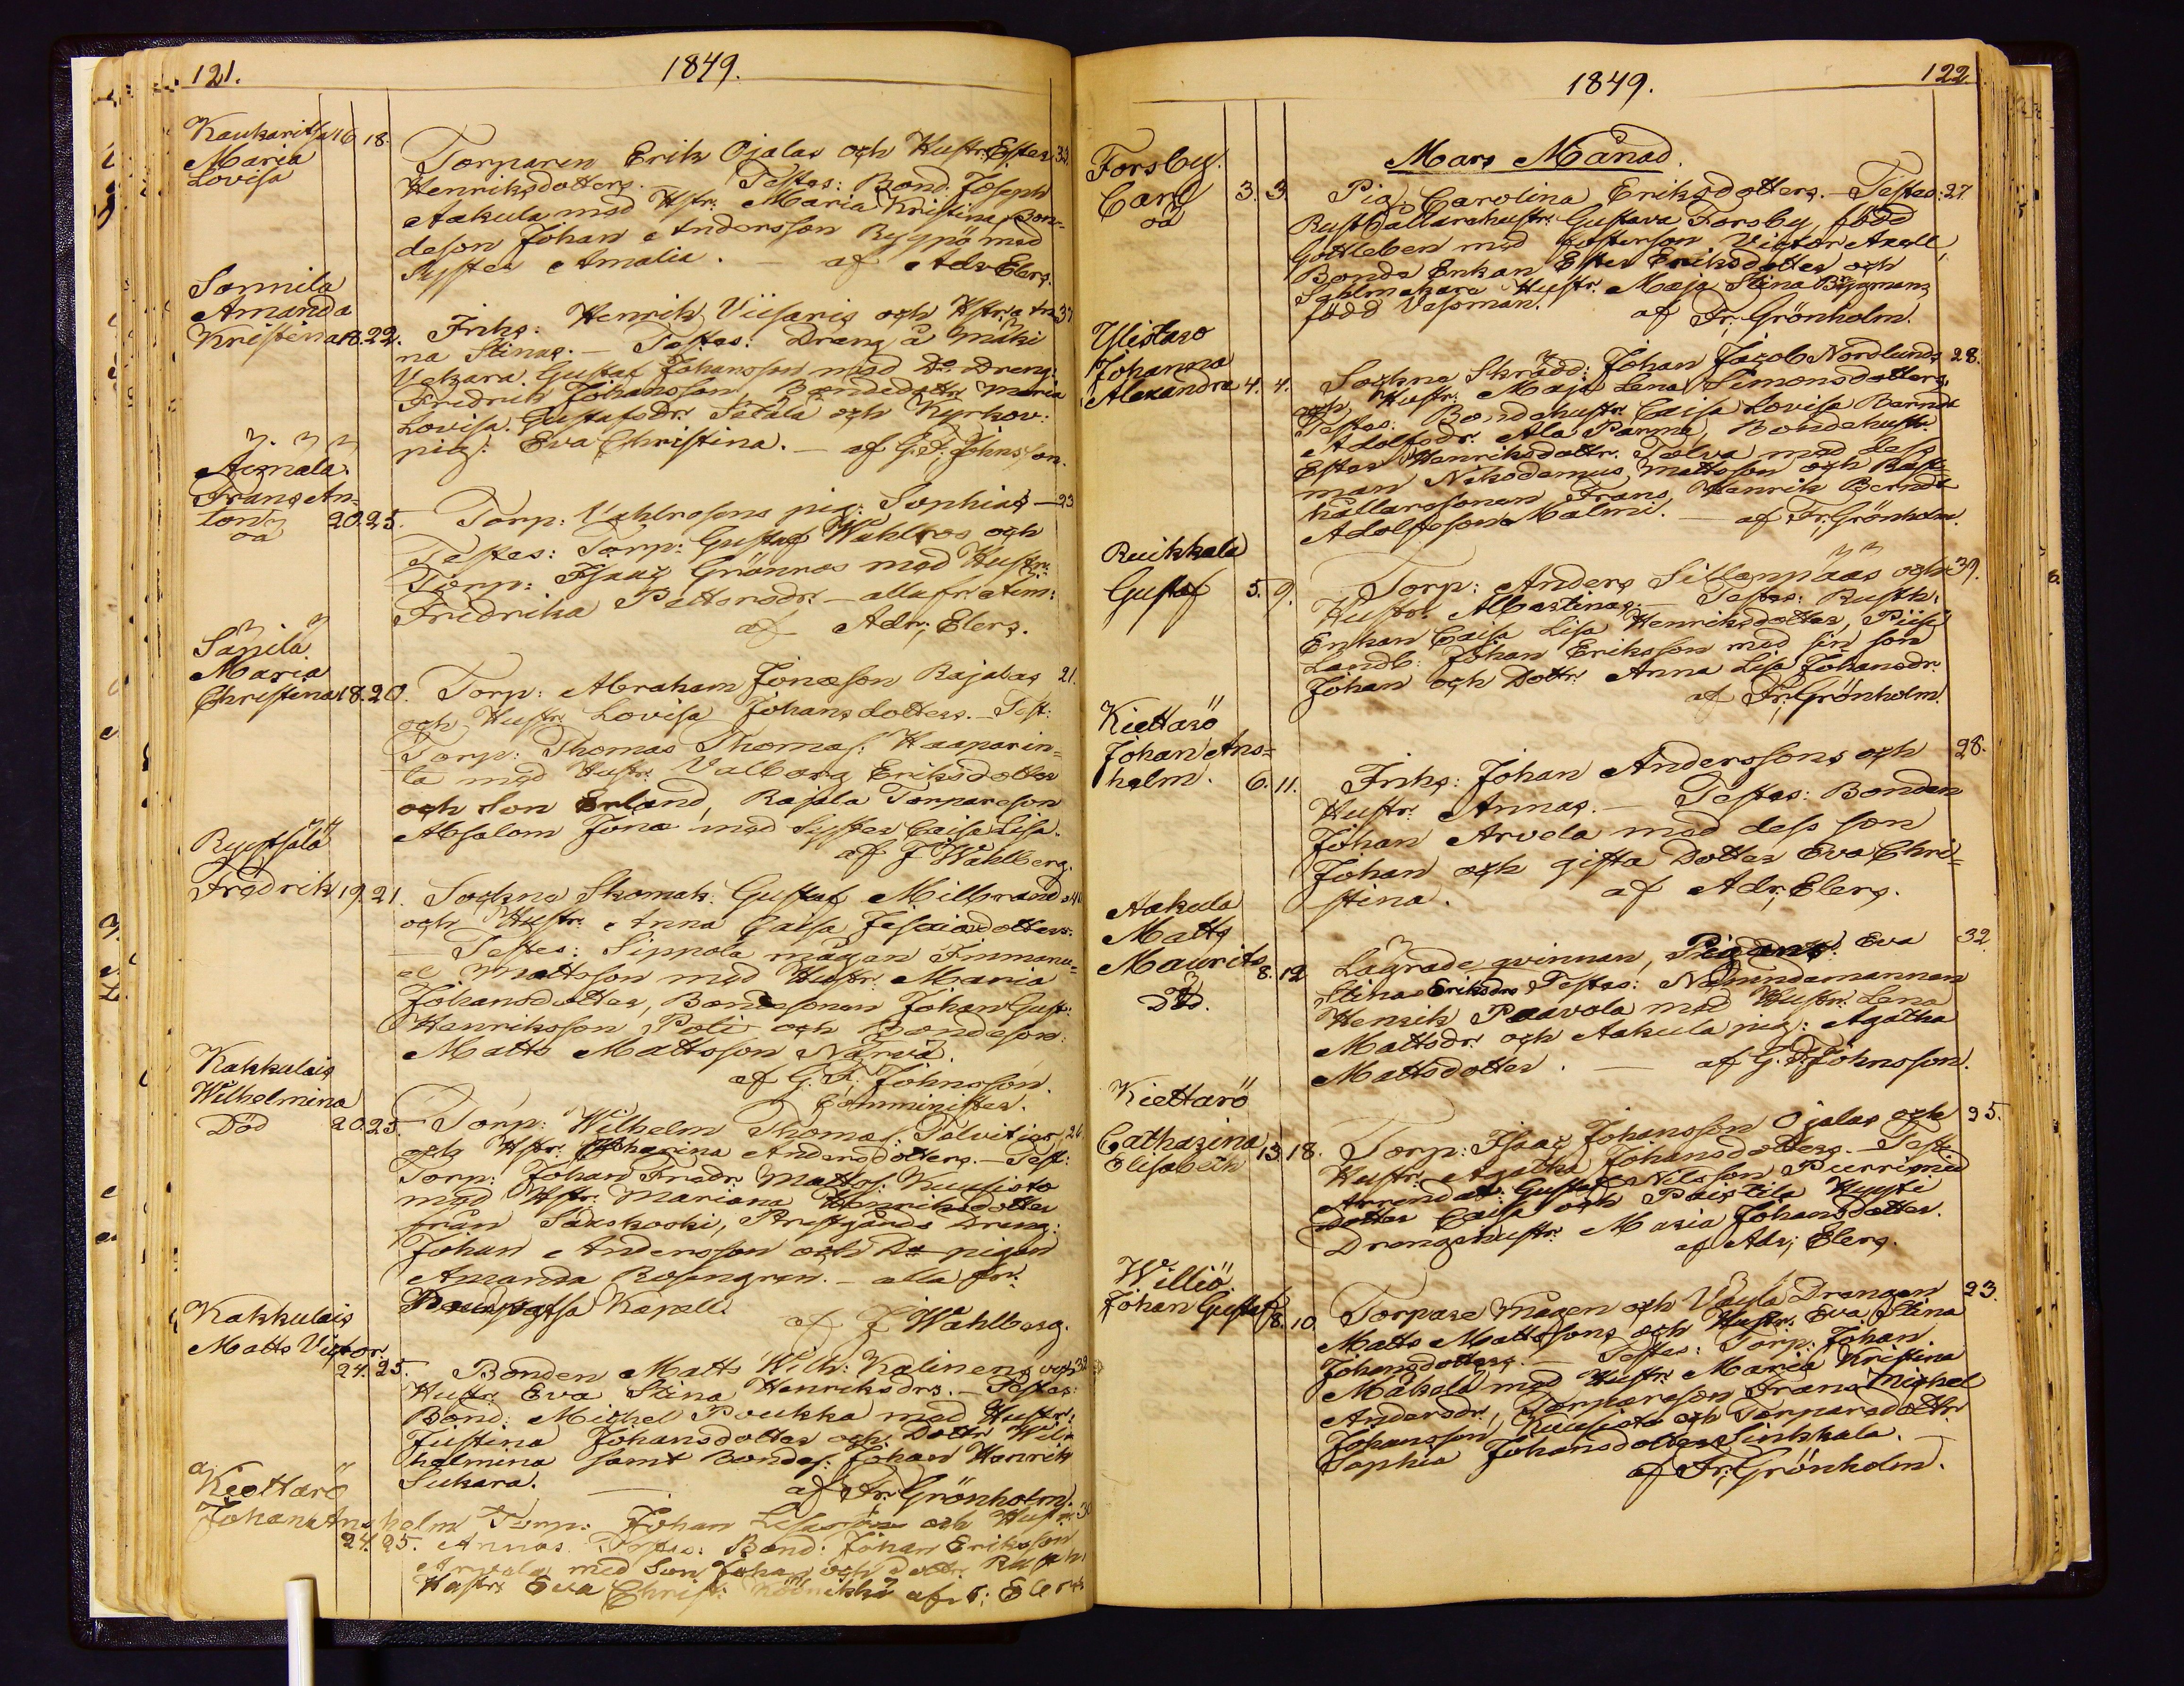 121. 1849.
Kaukaritsa 16 18. Torparen Erik Ojalas och Hustr. Ester 33.
Maria Henriksdotters. Testes: Bond. Joseph
Lovisa Aakula med Hstr. Maria Kristina, Bon-
deson Johan Andersson Ryypö med
Syster Amalia. — af Adr Elers.
Sonnila
Amanda
Kristina 18. 22. Inhs: Henrik Viisaris och Hstr. 37
na Stinas. — Testes: Dräng å Mäki
Gustaf Johansson med Do Dräng:
Fredrich Johansson, Bondedottr Maria
Lovisa Gustafsdr. Sitala och Kyrkov:
pig: Eva Christina. — af G. F. Johnsson.
Aimala.
Frans An-
ton 20. 25. Torp: Vahlrosens pig: Sophias — 23
oä Testes: Torp: Gustaf Wahlros och
Torp: Isaac Grönros med Hustr:
Fredrika Pettersdr. — alla fr. Aim:
af Adr; Elers.
Sänilä
Maria
Christina 18. 20. Torp: Abraham Jonæson Rajalas 21.
och Hustr Lovisa Johansdotters. — Test:
Torp: Thomas Thomas: Haaparin-
ta med Hustr: Valborg Eriksdotter
och Son Erland, Rajala Torpareson
Absalom Jonæ med Syster Caisa Lisa.
af J Wahlberg.
Ryystsälä
Fredrik 19. 21. Sockne Skomak: Gustaf Millbrands 40
och Hustr. Anna Caisa Jesaiædotters.
— Testes: Sippola mågen Immanu-
el Mattsson med Hustr. Maria
Johansdotter, Bondesonen Johan Gust:
Henriksson Poti och Bondeson:
Matts Mattsson Närvä.
af G. F. Johnsson.
Comminister.
Kakkulais
Wilhelmina
Död 20. 25. Torp: Wilhelm Thomas: Talvitjes 26.
och Hstr: Catharina Andersdotters. — Test:
Torp: Johan Fredr: Matts: Kuusisto
med Hstr: Mariana Henriksdotter
från Säkskoski, Prestgårds Dräng:
Johan Andersson och Do pigan
Amanda Rosengren. — alla fr:
Kapell. af J Wahlberg.
Kakkulais
Matts Victor
24. 25. Bonden Matts Wilh: Kalinens och 32
Hustr Eva Stina Henriksdrs. — Testes:
Bond: Michel Poukka med Hustr:
Justina Johansdotter och Dottr Wil-
helmina samt Bondes: Johan Henrik
Sukara. — af Fr. Grönholm.
Kiettarö
Johan Ans helm Torp: Johan och Hustr: 30
24. 25. Annas Testes: Bond: Johan Eriksson
Arvela med Son Johan och dottr Rusth
Hustr Eva Christ: af A: Elers
1849. 122
Mars Månad.
Forsby.
Carl 3. 3. Pig. Carolina Eriksdotters. — Testes: 27
oä Rusthållarehustr: Gustava Forsby född
Gottleben med fosterson Victor Axell,
Bonde Enkan Ester Eriksdotter och
Sahlmakare Hustr. Maja Stina Bergman
född Vessman. af Fr; Grönholm.
Ylistaro
Johanna
Alexandra 4. 4. Sockne Skrädd: Johan Jacob Nordlunds 28.
och Hustr. Maja Lena Simonsdotters,
Testes. Bondehustr Caisa Lovisa Berndt
Adolfsdr. Ala Panma, Bondehustr:
Ester Henriksdottr. Tolva med dess
man Nikodemus Mattsson och Rust-
hållarsonen Frans Henrik Berndt
Adolfsson Malmi. — af Fr; Grönholm
Ruikkala
Gustaf 5. 9. Torp: Anders Sillanpääs och 39.
Hustr. Albertinas. — Testes: Rusth:
Enkan Caisa Lisa Henriksdotter, Piise
Landb: Johan Eriksson med sin son
Johan och Dottr. Anna Lisa Johansdr.
af Fr; Grönholm.
Kiettarö
Johan Ans-
helm. 6. 11. Inhs: Johan Anderssons och 28.
Hustr. Annas. — Testes: Bonden
Johan Arvela med dess son
Johan och gifta Dotter Eva Chri-
stina. af Adr; Elers.
Aakula
Matts
Maurits 8. 12 Lägrade qvinnan, Eva 32
Död. Stina Eriksdrs Testes: Nämndemannen
Henrik Paavola med Hustr. Lena
Mattsdr. och Aakula pig: Agatha
Mattsdotter. — af G. F Johnsson.
Kiettarö
Catharina 13. 18. Torp: Isaac Johansson Ojalas och 25.
Elisabeth Hustr: Agatha Johansdotters. — Test:
Arrendat: Gustaf Nilsson Purri med
Dotter Caisa och Paistila Hyyti
Drengehustr: Maria Johansdotter.
af Adr; Elers.
Williö.
Johan Gustaf 8. 10 Torpare Mågen och Väylä Drängen 23.
Matts Mattssons och Hustr. Eva Stina
Johansdotters. — Testes: Torp: Johan
Mäkelä med Hustr: Maria Kristina
Andersdr., Torpareson Frans Michel
Johansson Kuusisto och Torparedottr
Sophia Johansdotter Sinkkala. —
af Fr; Grönholm.